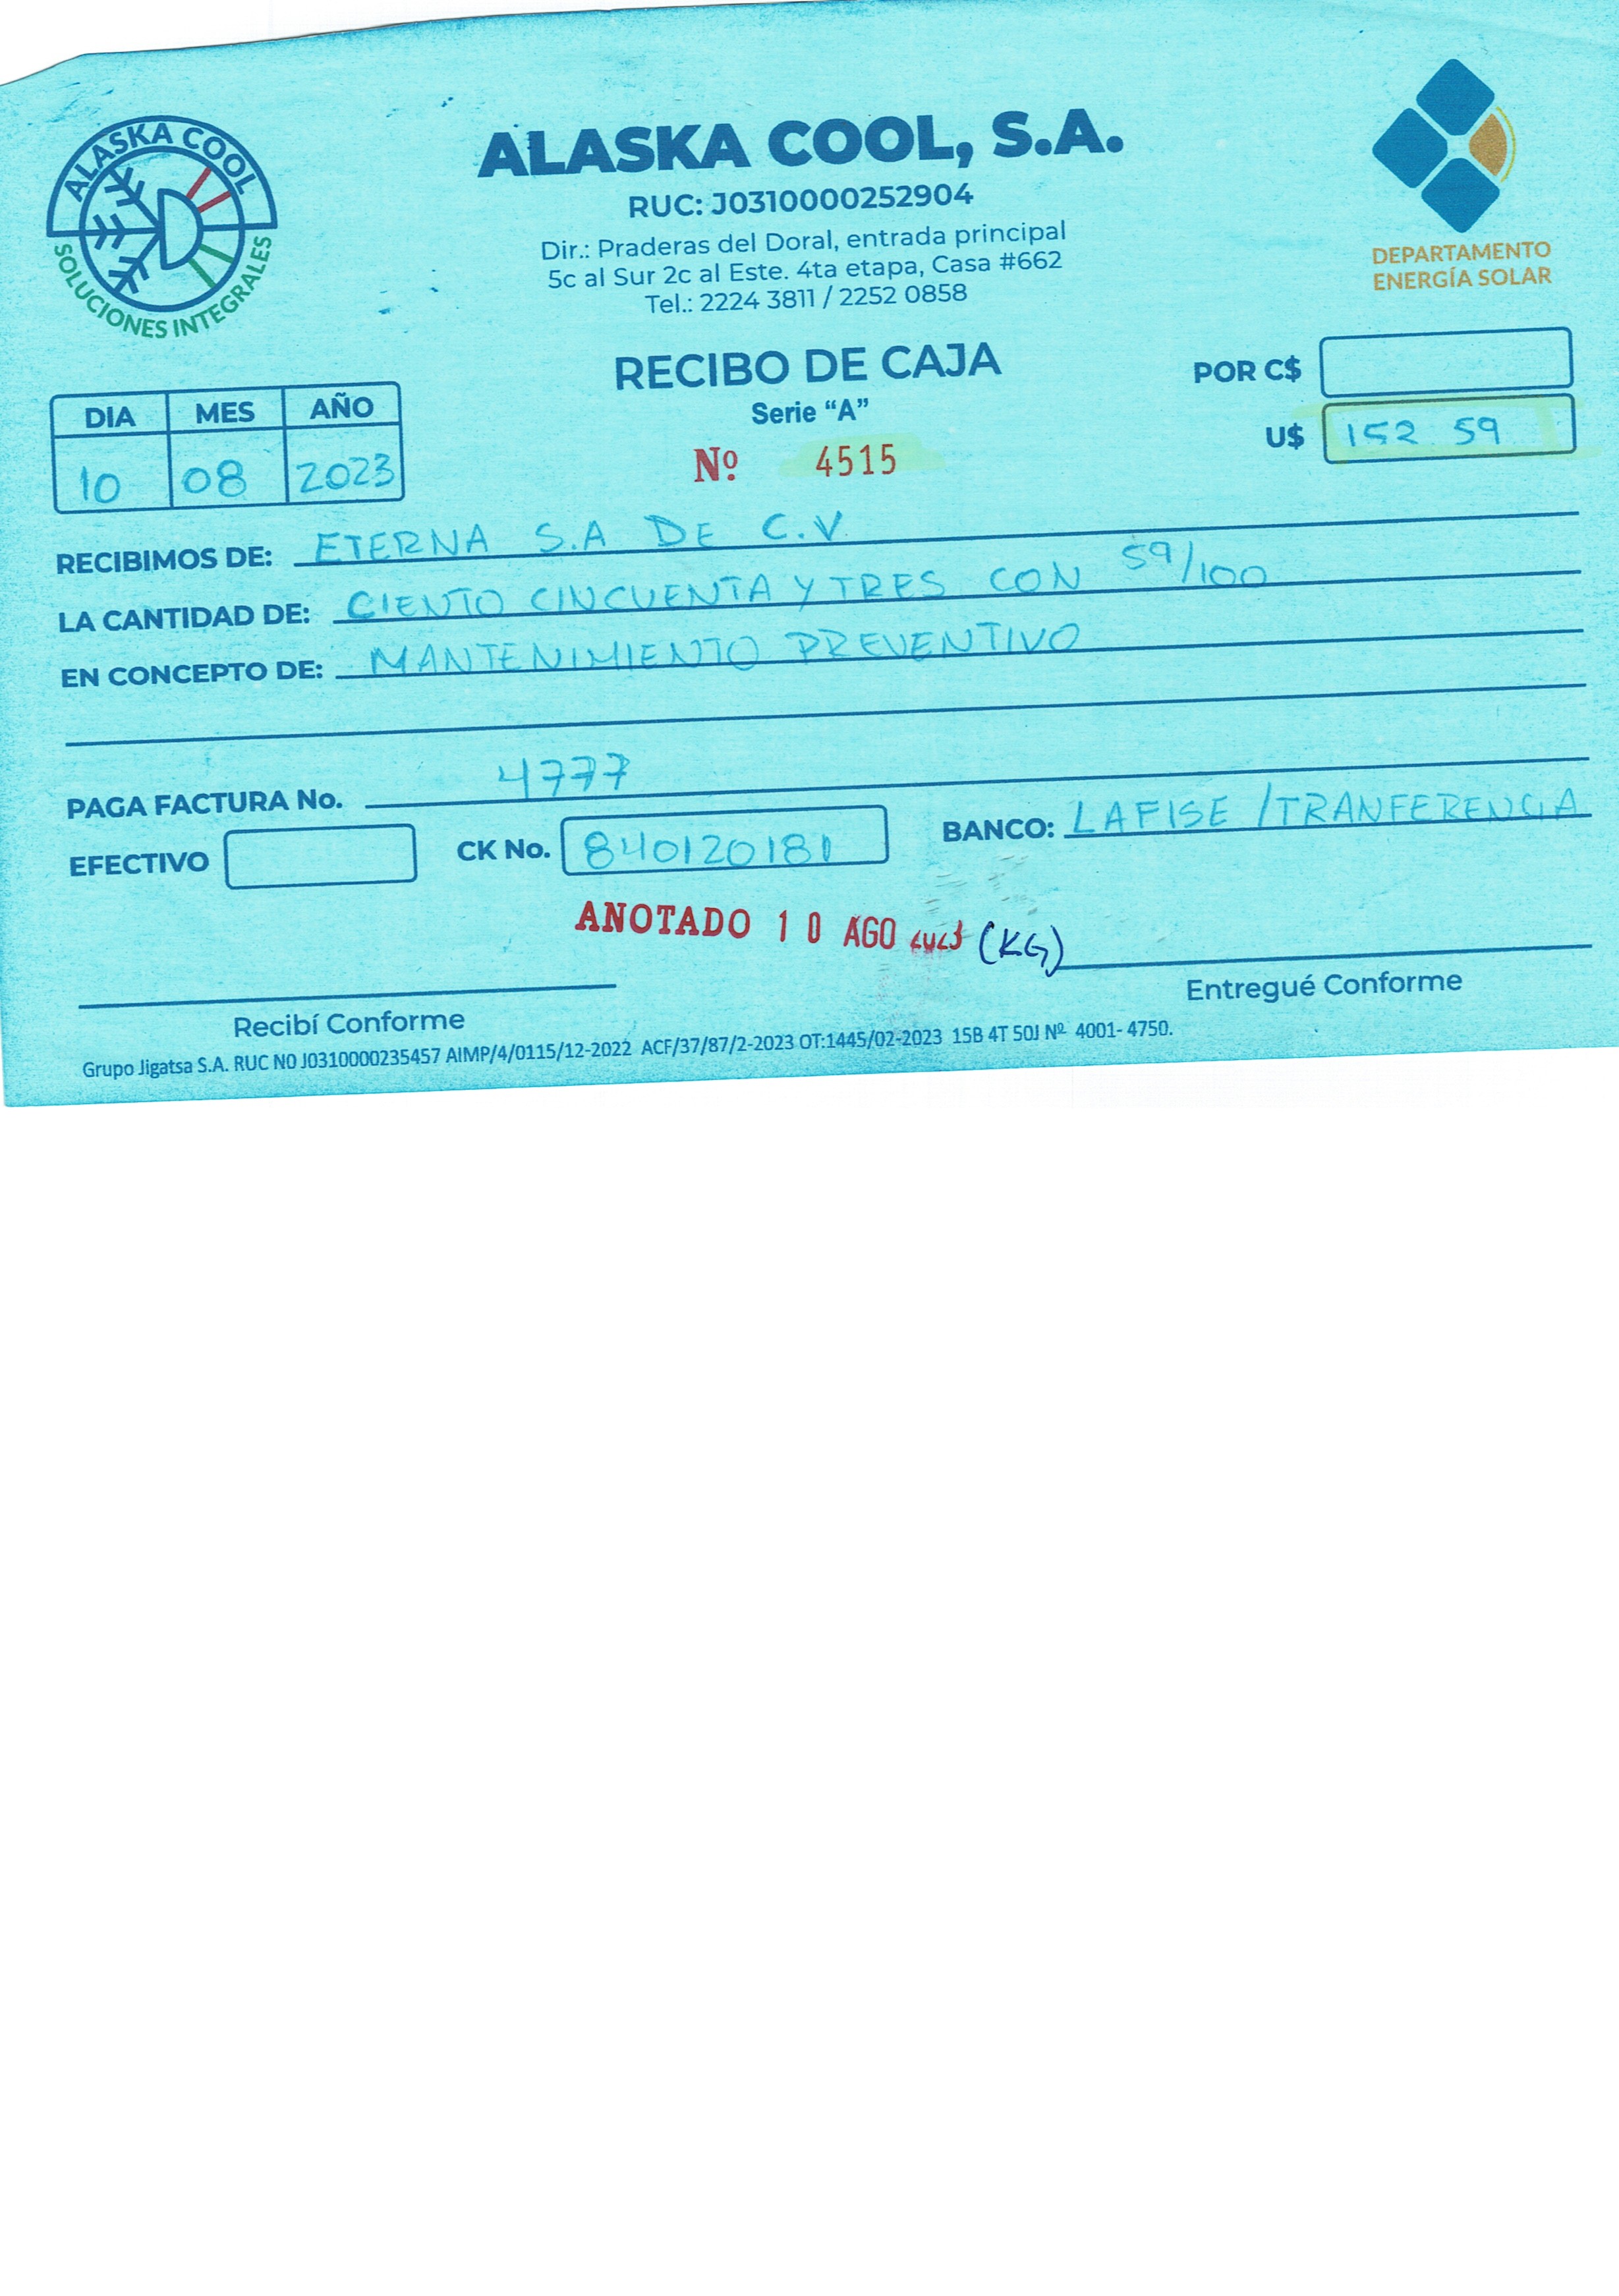 ALASKA COOL
SOLUCIONES INTEGRALES
ALASKA COOL, S.A.
RUC: J0310000252904
Dir.: Praderas del Doral, entrada principal
5c al Sur 2c al Este. 4ta etapa, Casa #662
Tel.: 2224 3811 / 2252 0858
DEPARTAMENTO
ENERGÍA SOLAR
RECIBO DE CAJA
Serie “A”
Nº 4515
POR C$
U$ 152 59
DIA MES AÑO
10 08 2023
RECIBIMOS DE: ETERNA S.A DE C.V.
LA CANTIDAD DE: CIENTO CINCUENTA Y TRES CON 59/100
EN CONCEPTO DE: MANTENIMIENTO PREVENTIVO
PAGA FACTURA No. 4777
EFECTIVO CK No. 840120181 BANCO: LAFISE /TRANFERENCIA
ANOTADO 10 AGO 2023 (KG)
Recibí Conforme Entregué Conforme
Grupo Jigatsa S.A. RUC N0 J0310000235457 AIMP/4/0115/12-2022 ACF/37/87/2-2023 OT:1445/02-2023 15B 4T 50J Nº 4001- 4750.